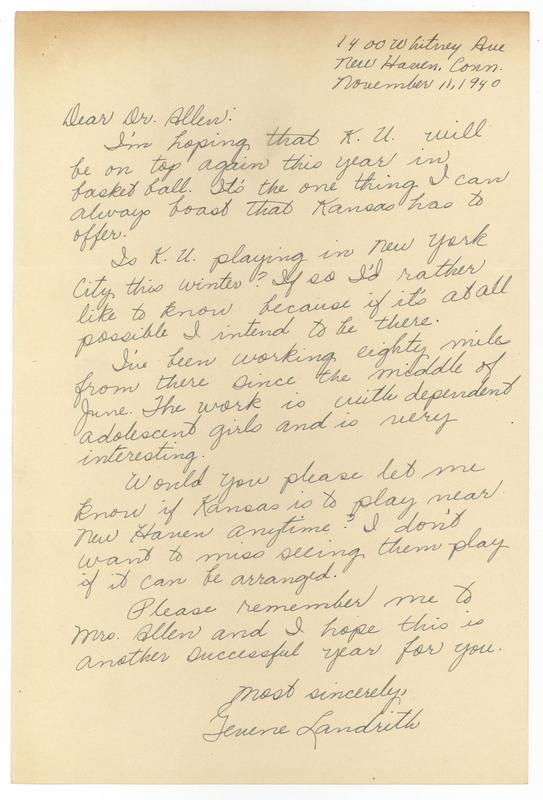 1400 Whitney Ave
New Haven, Conn.
November 11, 1940
Dear Dr. Allen:
I'm hoping that K. U. will
be on top again this year in
basket ball. It's the one thing I can
always boast that Kansas has to
offer.
Is K. U. playing in New York
City this winter? If so I'd rather
like to know because if it's at all
possible I intend to be there.
I've been working eighty miles
from there since the middle of
June. The work is with dependent
adolescent girls and is very
interesting.
Would you please let me
know if Kansas is to play near
New Haven anytime? I don't
want to miss seeing them play
if it can be arranged.
Please remember me to
Mrs. Allen and I hope this is
another successful year for you.
Most sincerely,
Landrith